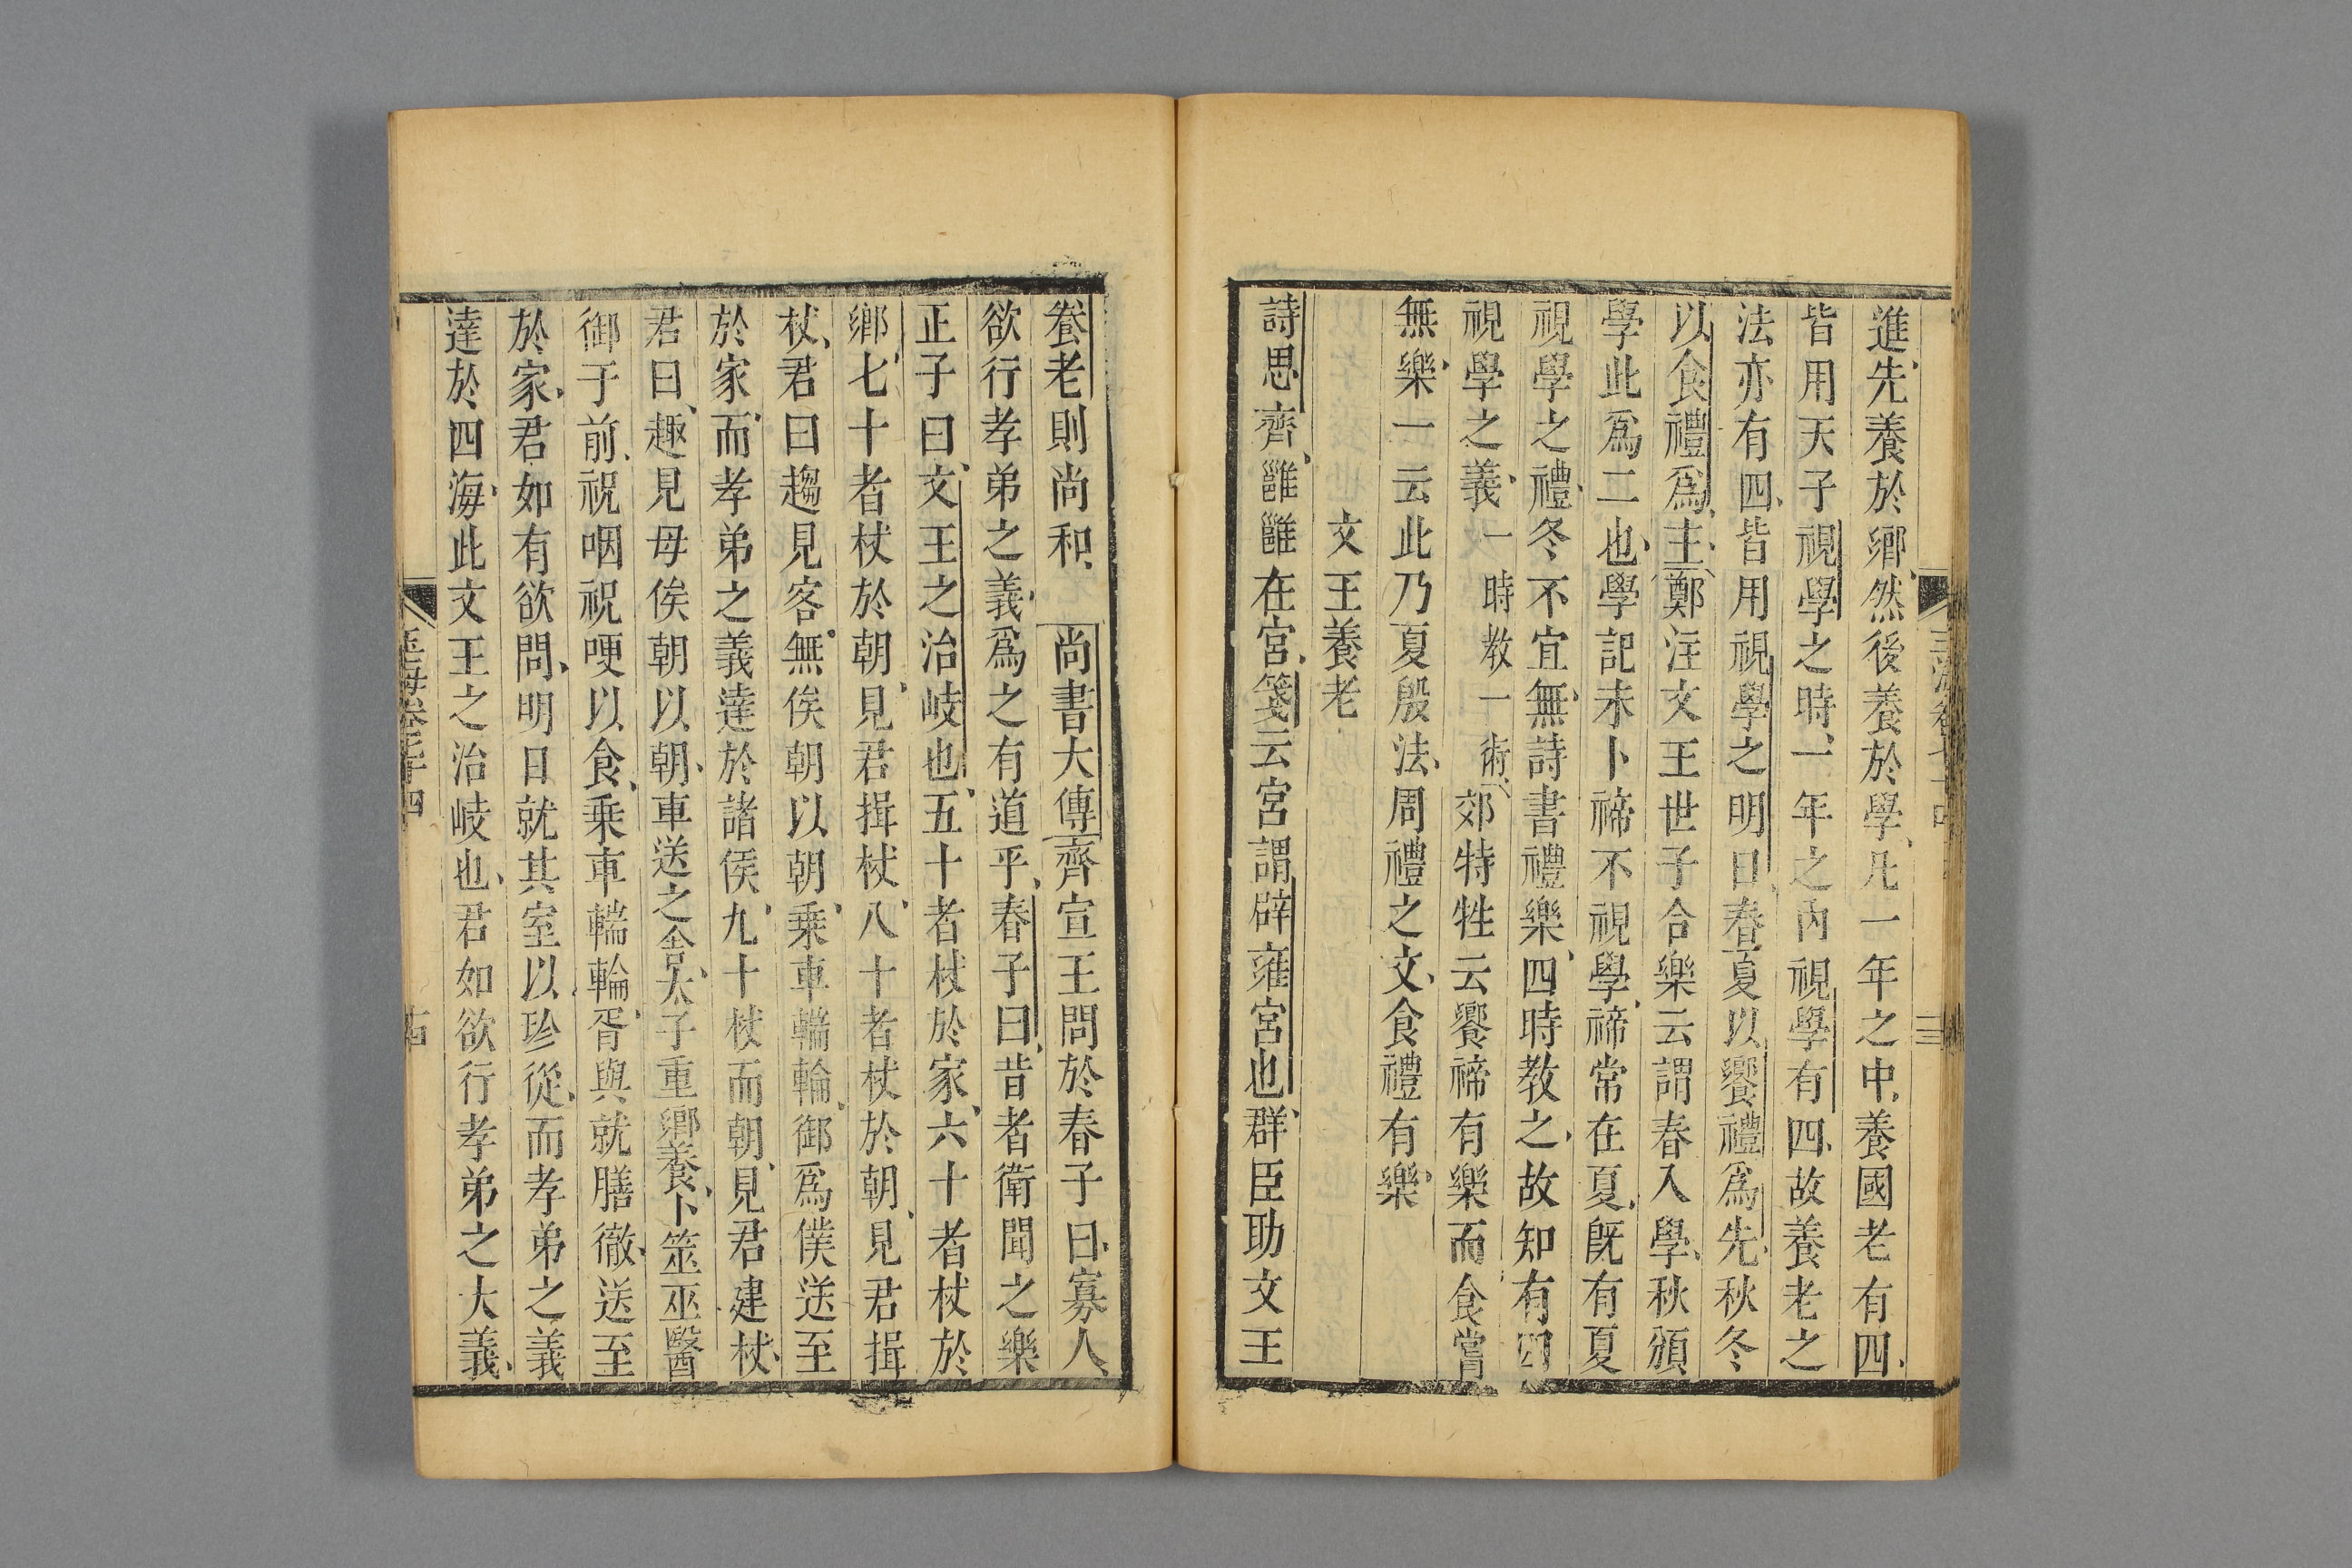 進先養於鄉然後養於學凡一年之中養國老有四
皆用天子視學之時一年之內視學有四故養老之
法亦有四皆用視學之明日春夏以饗禮爲先秋冬
以食禮爲主鄭注文王世子合樂云謂春入學秋頒
學此爲二也學記未卜禘不視學禘常在夏旣有夏
視學之禮冬不宜無詩書禮樂四時教之故知有四
視學之義一時教一術郊特牲云饗禘有樂而食嘗
無樂一云此乃夏殷法周禮之文食禮有樂
文王養老
詩思齊雝雝在宮箋云宮謂辟雍宮也群臣助文王
養老則尚和尚書大傳齊宣王問於春子曰寡人
欲行孝弟之義爲之有道乎春子曰昔者衛聞之樂
正子曰文王之治岐也五十者杖於家六十者杖於
鄉七十者杖於朝見君揖杖八十者杖於朝見君揖
杖君曰趨見客無俟朝以朝乘車輲輪御爲僕送至
於家而孝弟之義達於諸侯九十杖而朝見君建杖
君曰趣見毋俟朝以朝車送之舍太子重鄉養卜筮巫醫
御于前祝咽祝哽以食乘車輲輪胥與就膳徹送至
於家君如有欲問明日就其室以珍從而孝弟之義
達於四海此文王之治岐也君如欲行孝弟之大義
玉海卷七十四